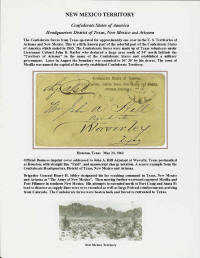 NEW MEXICO TERRITORY
Confederate States of America
Headquarters District of Texas, New Mexico and Arizona
The Confederate forces from Texas operated for approximately one year in the U. S. Territories of
Arizona and New Mexico. This is a little known part of the colorful past of the Confederate States
of America which ended in 1865. The Confederate forces were made up of Texas volunteers under
Lieutenant Colonel John R. Baylor who declared a large area south of 34° north latitude the
"Territory of Arizona" in the name of the Confederate States and established a military
government. Later in August the boundary was extended to 36° 30' by his decree. The town of
Mesilla was named the capital of the newly established Confederate Territory.
Waverley
Texas
Houston, Texas May 23, 1863
Official Business imprint cover addressed to John A. Hill Adjutant at Waverly, Texas postmarked
at Houston, with straight line "Paid", and manuscript charge notation. A scarce example from the
Confederate Headquarters, District of Texas, New Mexico and Arizona.
Brigadier General Henry H. Sibley designated his far reaching command in Texas, New Mexico,
and Arizona as "The Army of New Mexico". Then moving further westward captured Mesilla and
Fort Fillmore in southern New Mexico. His attempts to extended north to Fort Craig and Santa Fe
lead to disaster as supply lines were over extended as well as large Federal reinforcements arriving
from Colorado. The Confederate forces were beaten back and forced to retreat to Texas.
New Mexico Territory